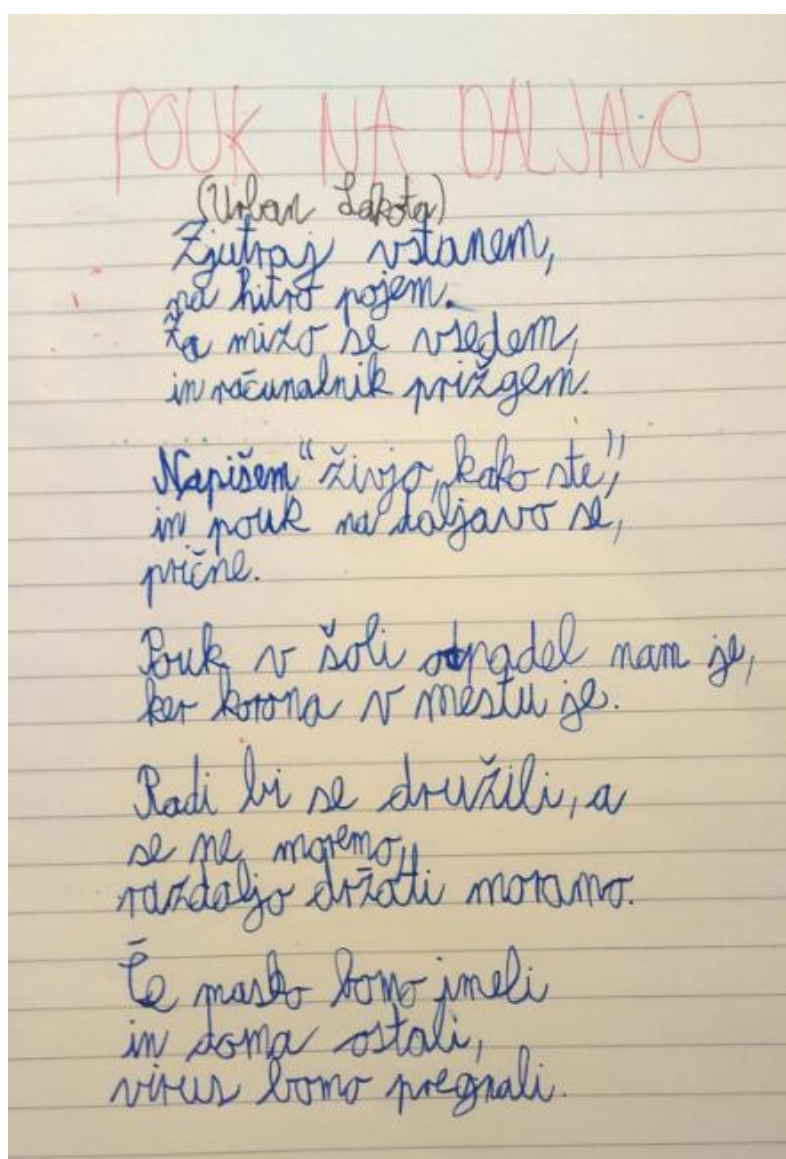 POUK NA DALJAVO
(Urban Lakota)
Zjutraj vstanem,
na hitro pojem.
Za mizo se vsedem,
in računalnik prižgem.
Napišem "živjo, kako ste",
in pouk na daljavo se,
prične.
Pouk v šoli odpadel nam je,
ker korona v mestu je.
Radi bi se družili, a
se ne moremo,
razdaljo držati moramo.
Če masko bomo imeli
in doma ostali,
virus bomo pregnali.